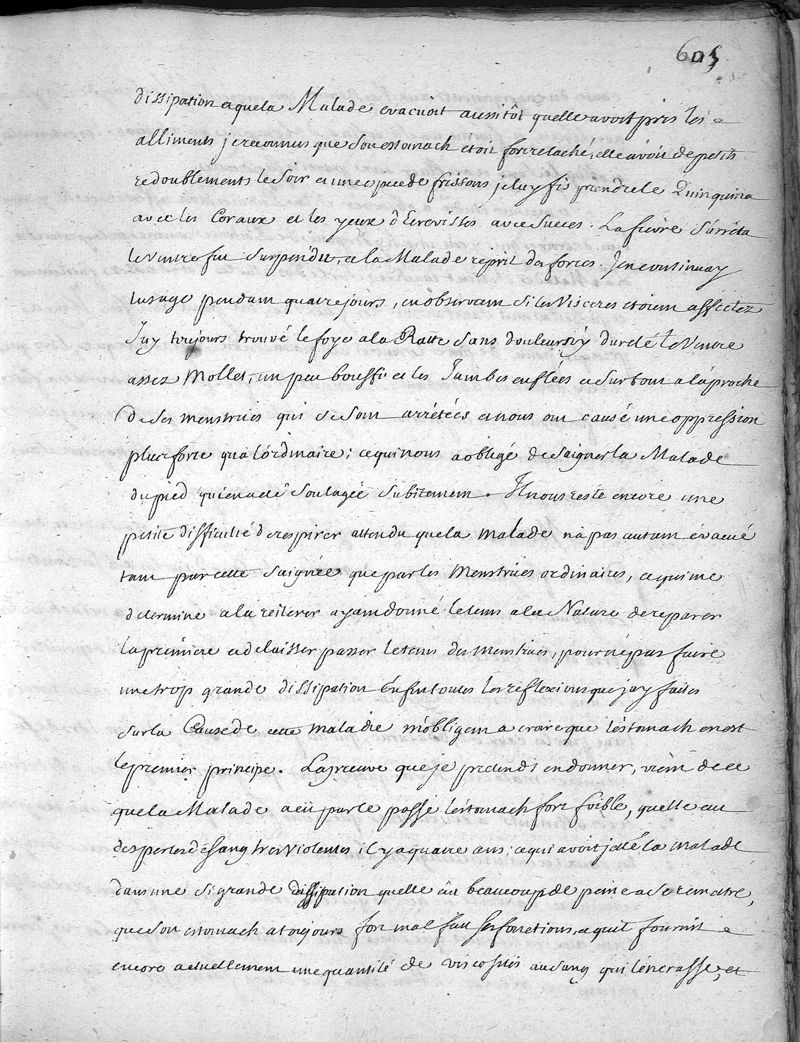 605
dissipation et que la Malade evacuoit aussitôt quelle avoit pris les
alliments je reconnus que son estomach étoit fort relaché, elle avoit de petits
redoublements le soir et une espece de frissons je luy fis prendre le Quinquina
avec les Coraux et les yeux d'Ecrevisses avec succes. La fievre s'arrêta
le ventre fut suspendu, et la Malade reprit des forces. J'en continuay
lusage pendant quatre jours, en observant si les visceres etoient affectez
Jay toujours trouvé le foye et la Ratte sans douleurs ny dureté le Ventre
assez Mollet, un peu bouffi et les Jambes enflées et surtout a l'aproche
de ses menstrues qui se sont arrétées et nous ont causé une oppression
plus forte qua l'ordinaire; ce qui nous a obligé de saigner la Malade
du pied qui en a été soulagée subitement. Il nous reste encore une
petite difficulté de respirer attendu que la malade n'a pas autant évacué
tant par cette saignée que par les Menstrues ordinaires, ce qui me
determine a la reiterer ayant donné le tems a la Nature de reparer
la premiere et de laisser passer le tems des menstrues, pour ne pas faire
une trop grande dissipation Enfin toutes les reflexions que jay faites
sur la Cause de cette maladie m'obligent a croire que l'éstomach en est
le premier principe. La preuve que je pretends en donner, vient de ce
que la Malade a eü par le passé l'estomach fort foible, quelle eut
des pertes de sang tres violentes il y a quatre ans; ce qui avoit jetté la malade
dans une si grande dissipation quelle eût beaucoup de peine a se remettre,
que son estomach a toujours fort mal fait ses fonctions, et quil fournit
encore actuellement une quantité de viscosités au sang qui l'encrasse, et